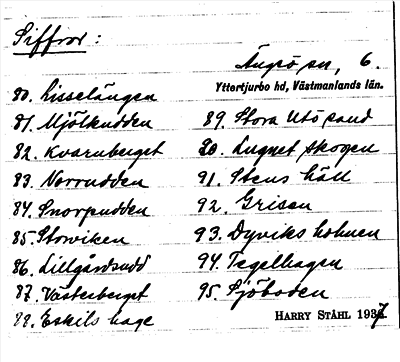 Siffror:
Ängsö sn, 6.
Yttertjurbo hd, Västmanlands län.
80. Lisselängen
81. Mjölkudden
82. Kvarnberget
83. Norrudden
84. Snorpudden
85. Storviken
86. Lillgårdsudd
87. Västerberget
88. Eskils hage
89. Stora Utösand
90. Lugnet skogen
91. Stens häll
92. Grisen
93. Dyviks holmen
94. Tegelhagen
95. Sjöboden
HARRY STÅHL 1937